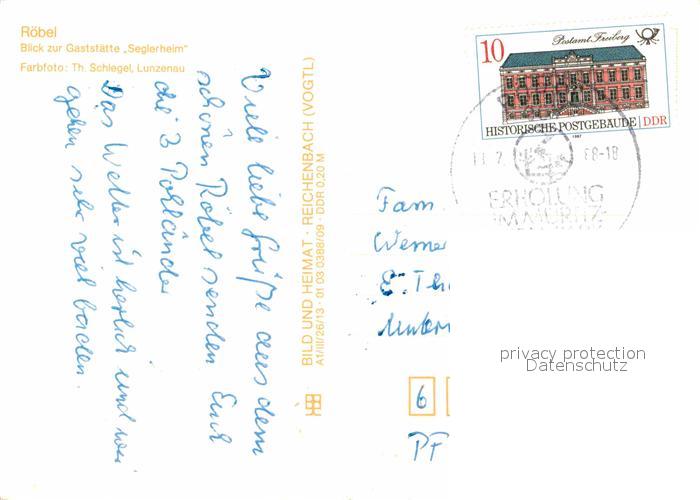 Röbel
Blick zur Gaststätte „Seglerheim"
Farbfoto: Th. Schlegel, Lunzenau
Viele liebe Grüße aus dem
schönen Röbel senden Euch
die 3 Pohländer
Das Wetter ist herlich und wir
gehen sehr viel baden.
BILD UND HEIMAT · REICHENBACH (VOGTL)
A1/III/26/13 · 01 03 0388/09 · DDR 0,20 M
10
Postamt Freiberg
HISTORISCHE POSTGEBÄUDE DDR
1987
88-18
ERHOLUNG
Fam.
Werne
E. Th
Unter
6
PF
privacy protection
Datenschutz